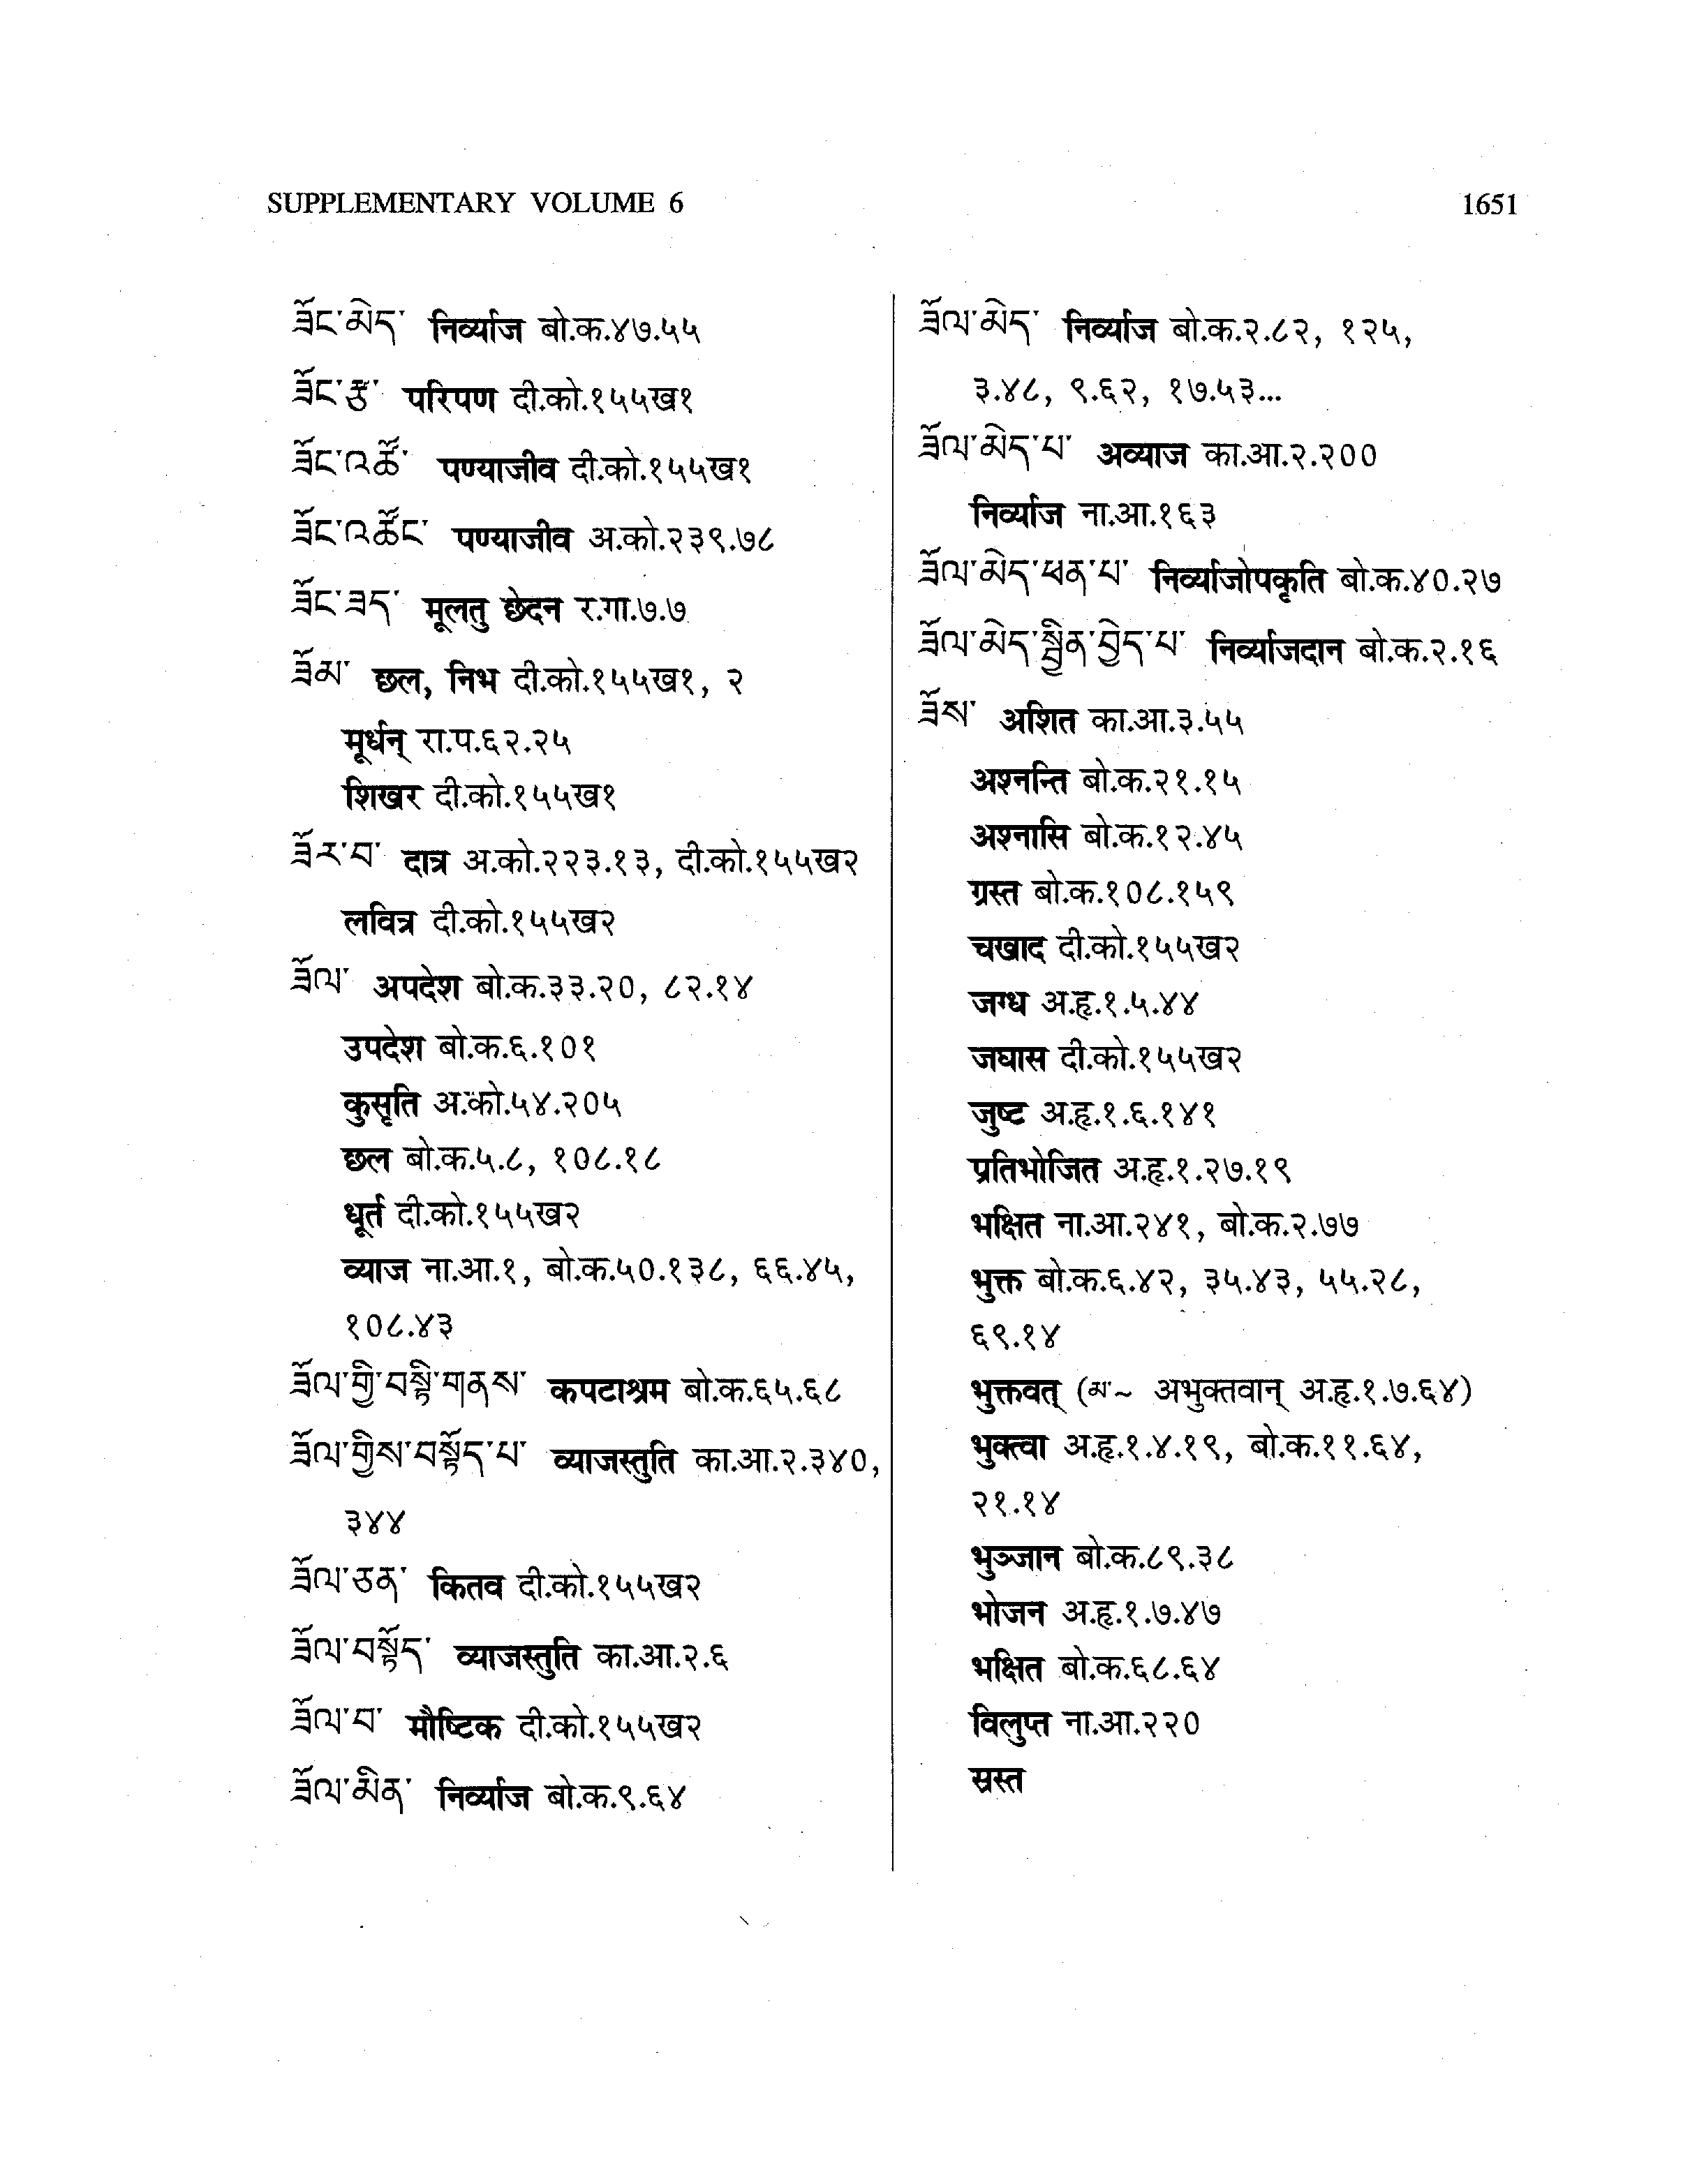 SUPPLEMENTARY VOLUME 6
1651
ཟོང་མེད་ निर्व्याज बो.क.४७.५५
ཟོང་རྩ་ परिपण दी.को.१५५ख१
ཟོང་འཚོ་ पण्याजीव दी.को.१५५ख१
ཟོང་འཚོང་ पण्याजीव अ.को.२३९.७८
ཟོང་ཟད་ मूलतु छेदन र.गा.७.७
ཟོམ་ छल, निभ दी.को.१५५ख१, २
मूर्धन् रा.प.६२.२५
शिखर दी.को.१५५ख१
ཟོར་བ་ दात्र अ.को.२२३.१३, दी.को.१५५ख२
लवित्र दी.को.१५५ख२
ཟོལ་ अपदेश बो.क.३३.२०, ८२.१४
उपदेश बो.क.६.१०१
कुसृति अ.को.५४.२०५
छल बो.क.५.८, १०८.१८
धूर्त दी.को.१५५ख२
व्याज ना.आ.१, बो.क.५०.१३८, ६६.४५,
१०८.४३
ཟོལ་གྱི་བསྟི་གནས་ कपटाश्रम बो.क.६५.६८
ཟོལ་གྱིས་བསྟོད་པ་ व्याजस्तुति का.आ.२.३४०,
३४४
ཟོལ་ཅན་ कितव दी.को.१५५ख२
ཟོལ་བསྟོད་ व्याजस्तुति का.आ.२.६
ཟོལ་བ་ मौष्टिक दी.को.१५५ख२
ཟོལ་མིན་ निर्व्याज बो.क.९.६४
ཟོལ་མེད་ निर्व्याज बो.क.२.८२, १२५,
३.४८, ९.६२, १७.५३...
ཟོལ་མེད་པ་ अव्याज का.आ.२.२००
निर्व्याज ना.आ.१६३
ཟོལ་མེད་ཕན་པ་ निर्व्याजोपकृति बो.क.४०.२७
ཟོལ་མེད་སྦྱིན་བྱེད་པ་ निर्व्याजदान बो.क.२.१६
ཟོས་ अशित का.आ.३.५५
अश्नन्ति बो.क.२१.१५
अश्नासि बो.क.१२.४५
ग्रस्त बो.क.१०८.१५९
चखाद दी.को.१५५ख२
जग्ध अ.हृ.१.५.४४
जघास दी.को.१५५ख२
जुष्ट अ.हृ.१.६.१४१
प्रतिभोजित अ.हृ.१.२७.१९
भक्षित ना.आ.२४१, बो.क.२.७७
भुक्त बो.क.६.४२, ३५.४३, ५५.२८,
६९.१४
भुक्तवत् (མ་~ अभुक्तवान् अ.हृ.१.७.६४)
भुक्त्वा अ.हृ.१.४.१९, बो.क.११.६४,
२१.१४
भुञ्जान बो.क.८९.३८
भोजन अ.हृ.१.७.४७
भक्षित बो.क.६८.६४
विलुप्त ना.आ.२२०
स्रस्त